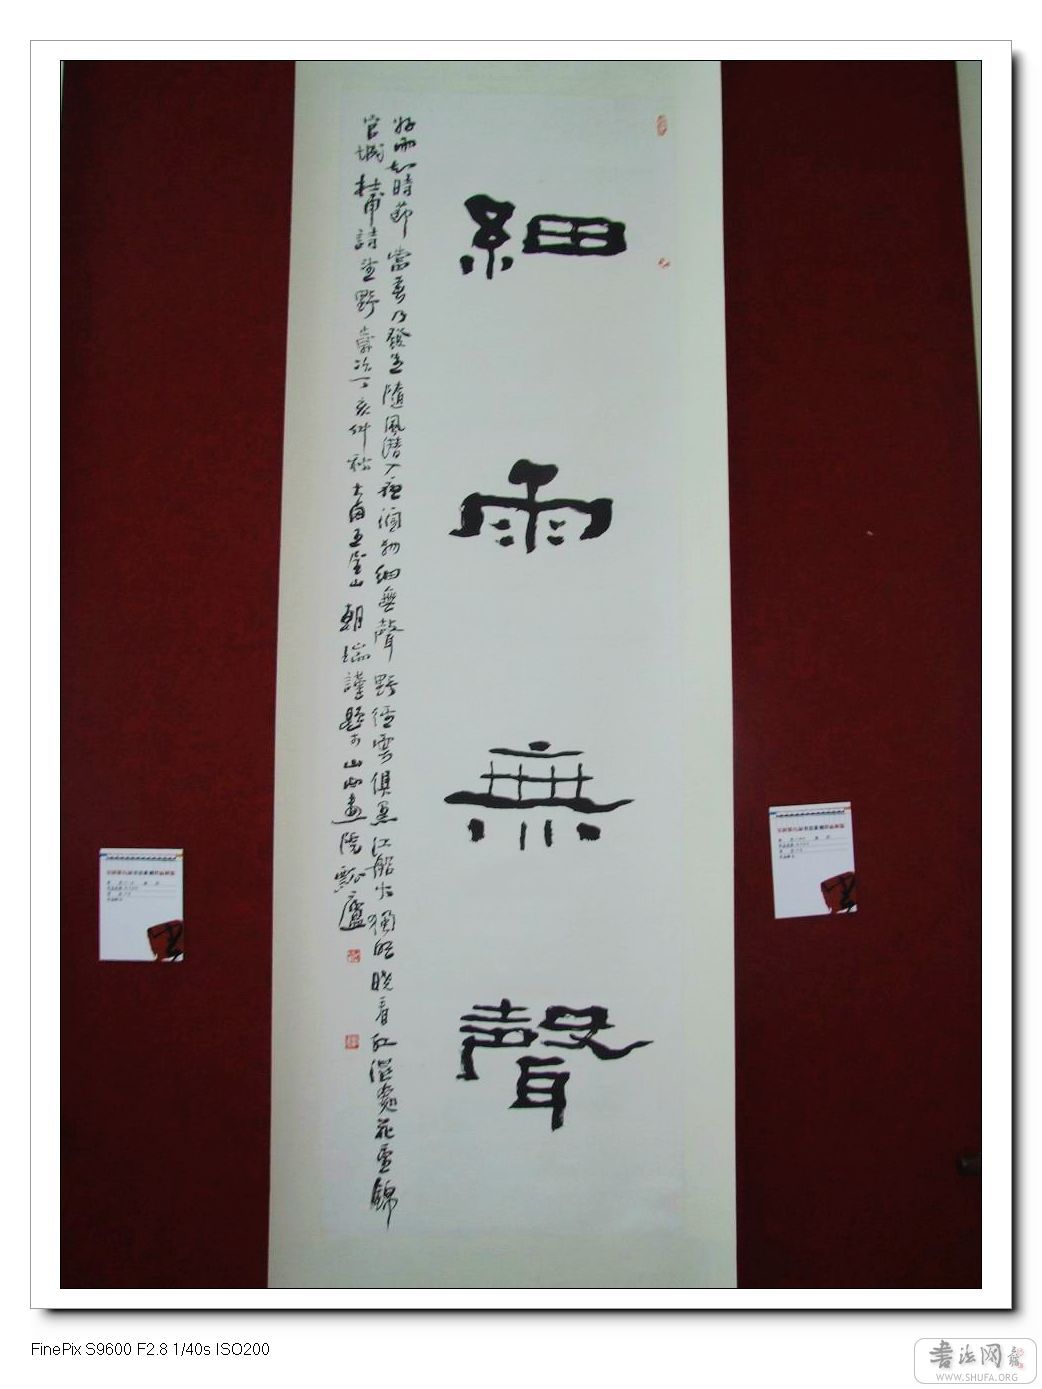 細雨無聲
好雨知時節當春乃發生隨風潛入夜潤物細無聲野徑雲俱黑江船火獨明曉看紅濕處花重錦
官城 杜甫詩 歲次丁亥仲秋 朝瑞謹題於山南畫院
FinePix S9600 F2.8 1/40s ISO200
書法网
WWW.SHUFA.ORG